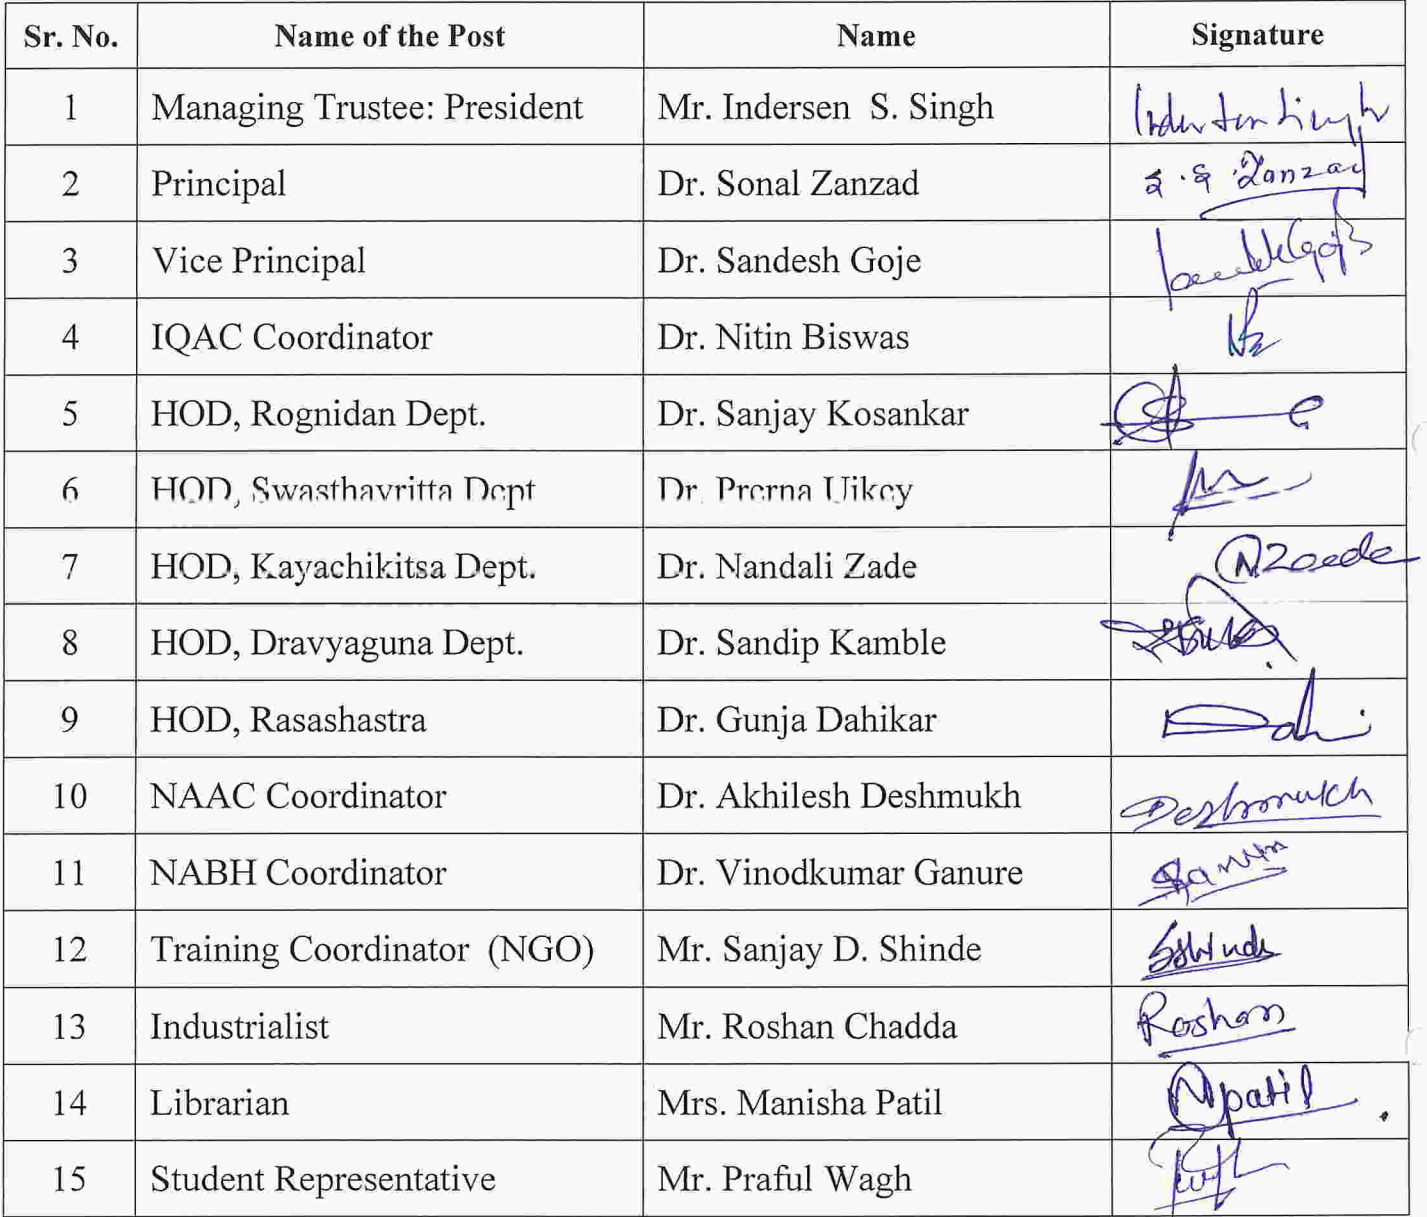 Sr. No. Name of the Post Name Signature
1 Managing Trustee: President Mr. Indersen S. Singh
2 Principal Dr. Sonal Zanzad Zanzad
3 Vice Principal Dr. Sandesh Goje
4 IQAC Coordinator Dr. Nitin Biswas
5 HOD, Rognidan Dept. Dr. Sanjay Kosankar
6 HOD, Swasthavritta Dept Dr. Prerna Uikey
7 HOD, Kayachikitsa Dept. Dr. Nandali Zade
8 HOD, Dravyaguna Dept. Dr. Sandip Kamble
9 HOD, Rasashastra Dr. Gunja Dahikar
10 NAAC Coordinator Dr. Akhilesh Deshmukh Deshmukh
11 NABH Coordinator Dr. Vinodkumar Ganure
12 Training Coordinator (NGO) Mr. Sanjay D. Shinde SShinde
13 Industrialist Mr. Roshan Chadda Roshan
14 Librarian Mrs. Manisha Patil Mpatil
15 Student Representative Mr. Praful Wagh